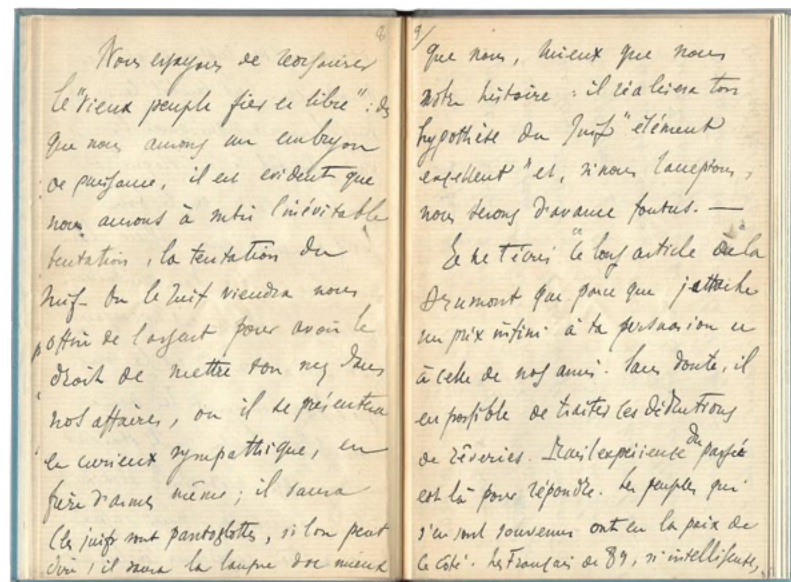 8
Nous essayons de réorganiser
le "vieux peuple fier et libre" : dès
que nous aurons un embryon
de puissance, il est évident que
nous aurons à subir l'inévitable
tentation, la tentation du
Juif. Ou le Juif viendra nous
offrir de l'argent pour avoir le
droit de mettre son nez dans
nos affaires, ou il se présentera
en curieux sympathique, en
frère d'armes même ; il saura
(les juifs sont pantoglottes, si l'on peut
dire) il saura la langue d'oc mieux
9/
que nous, mieux que nous
notre histoire : il réalisera ton
hypothèse du Juif "élément
excellent" et, si nous l'acceptons,
nous serons d'avance foutus. —
Je ne t'écris ce long article à la
Drumont que parce que j'attache
un prix infini à ta persuasion et
à celle de nos amis. Sans doute, il
est possible de traiter ces déductions
de rêveries. Mais l'expérience du passé
est là pour répondre. Les peuples qui
s'en sont souvenus ont eu la paix de
ce côté. Les Français de 89, si intelligents,